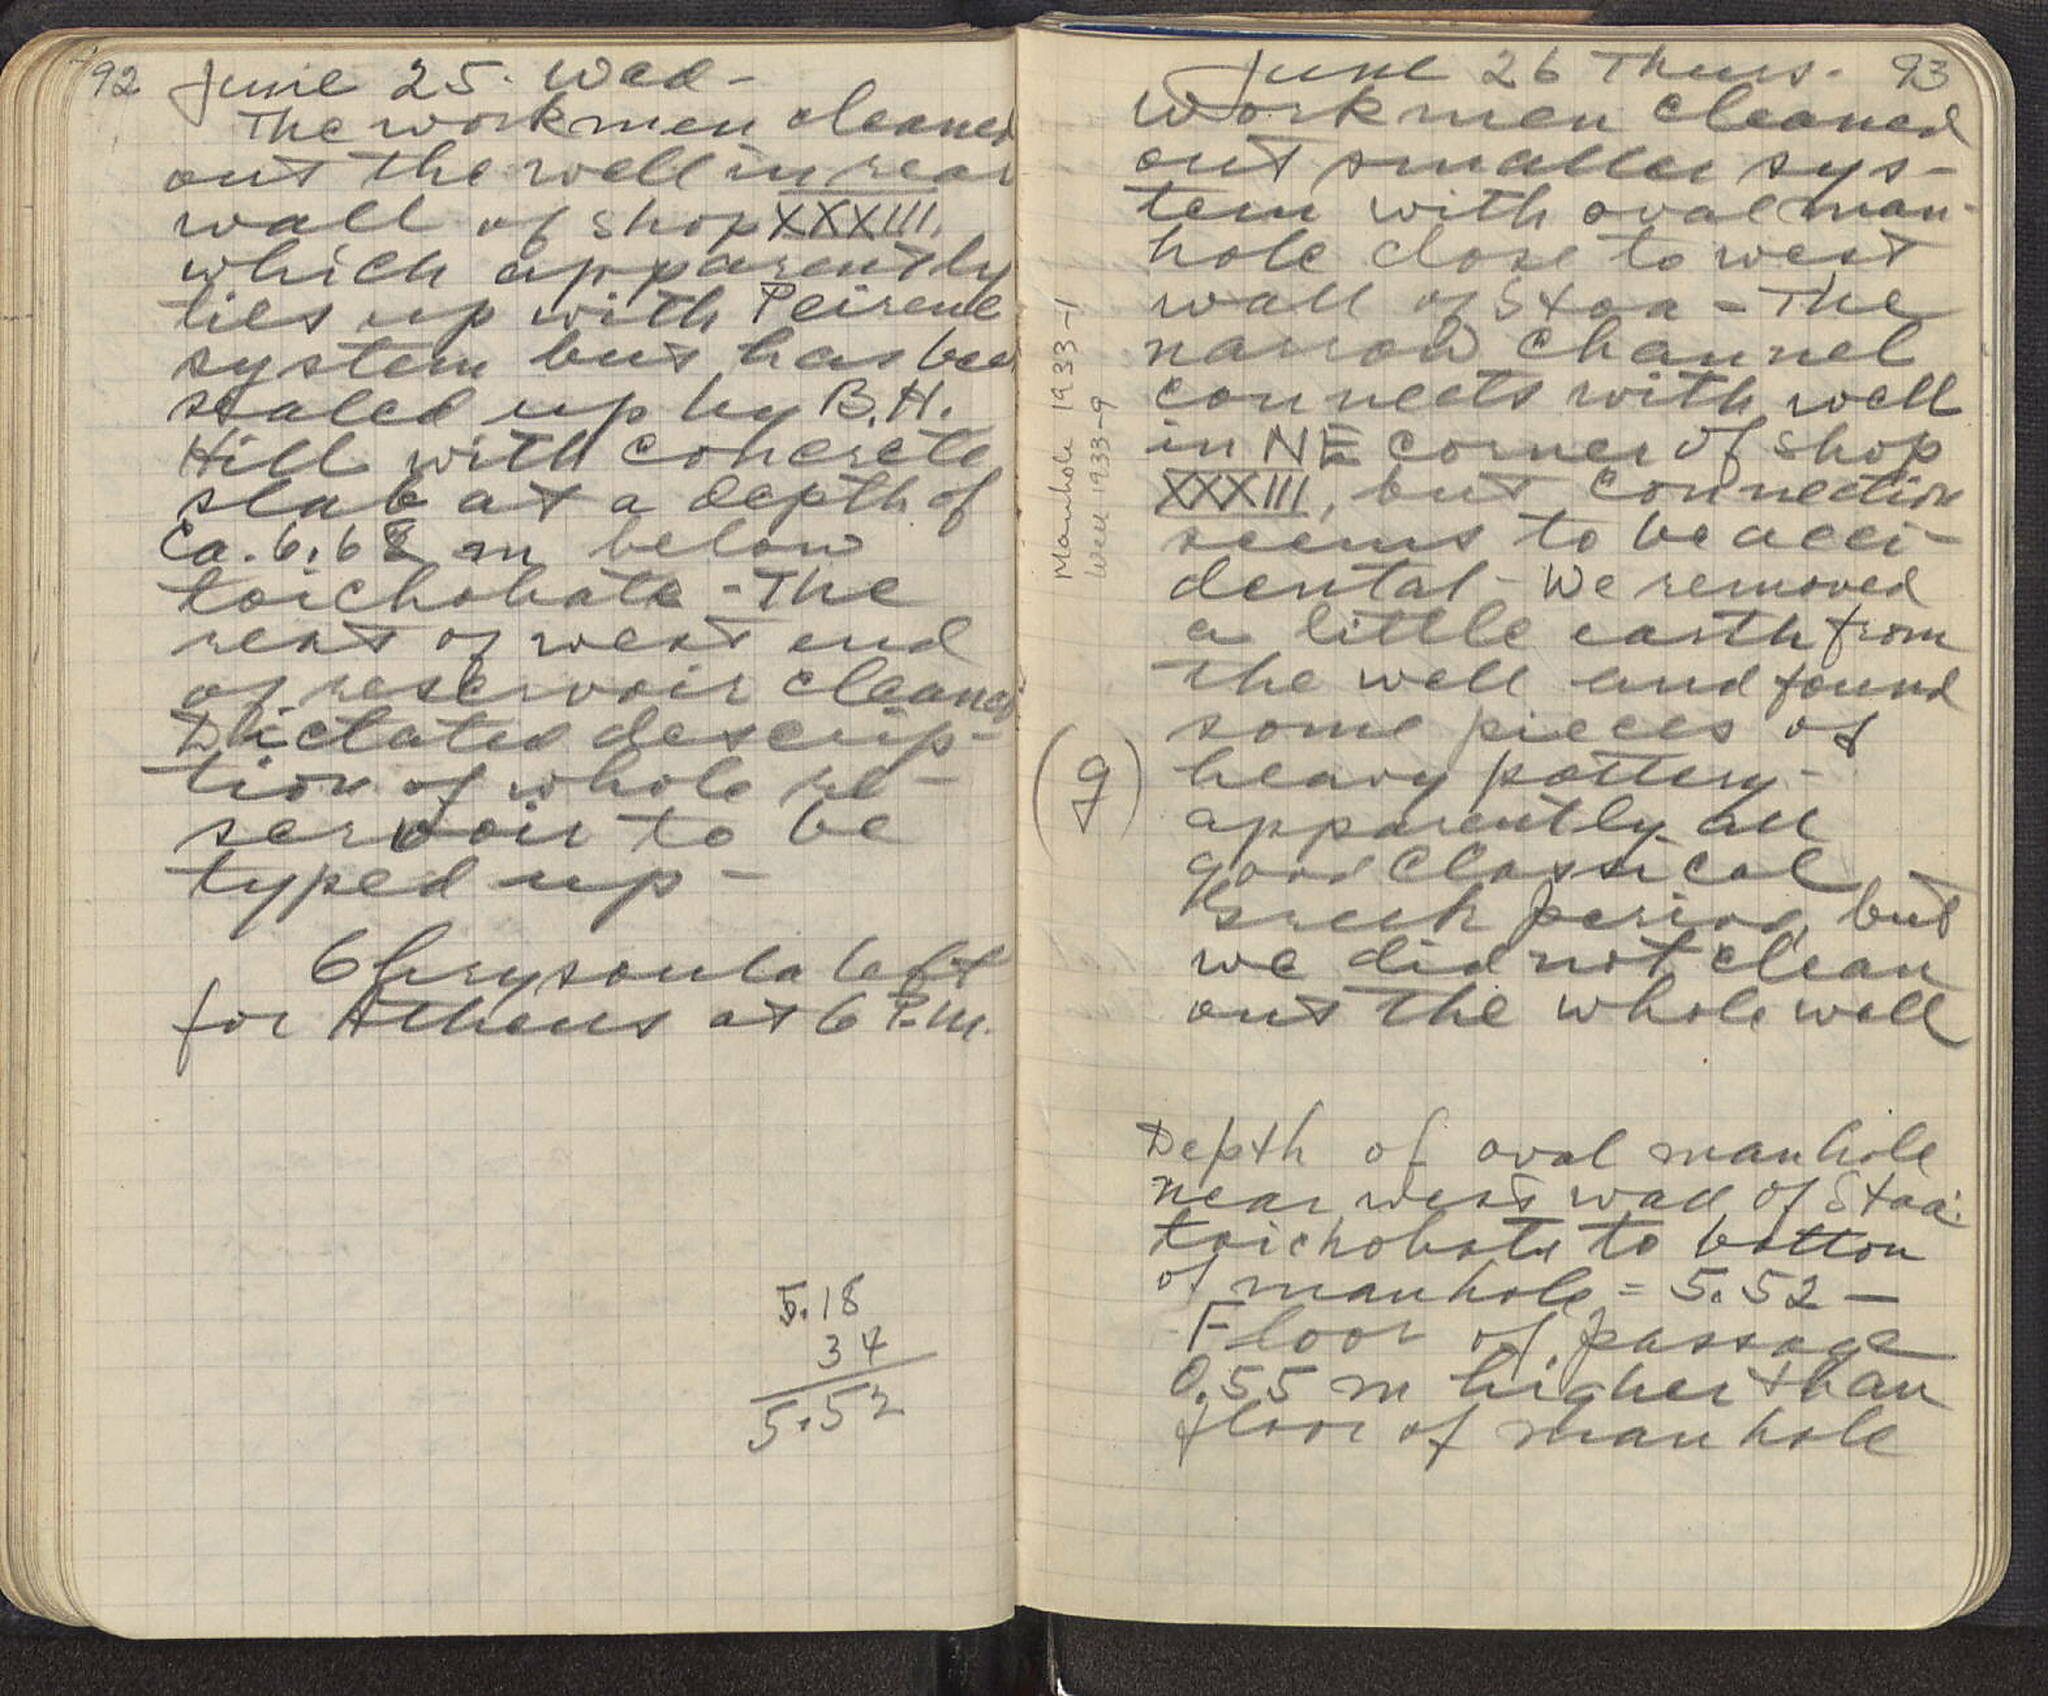 92 June 25. Wed-
The workmen cleaned
out the well in rear
wall of shop XXXIII.
which apparently
ties up with Peirene
system but has been
sealed up by B.H.
Hill with concrete
slab at a depth of
ca. 6.68 m below
toichobate - The
rest of west end
of reservoir cleaned
Dictated descrip-
tion of whole re-
servoir to be
typed up -
Chrysoula left
for Athens at 6 P.M.
5.18
34
5.52
June 26 Thurs. 93
Workmen cleaned
out smaller sys-
tem with oval man-
hole close to west
wall of Stoa - The
narrow channel
connects with well
in NE corner of shop
XXXIII, but connection
seems to be acci-
dental - We removed
a little earth from
the well and found
some pieces of
heavy pottery -
apparently all
good classical
Greek period, but
we did not clean
out the whole well
Manhole 1933-1
Well 1933-9
(g)
Depth of oval manhole
near west wall of Stoa:
toichobate to bottom
of manhole = 5.52 -
Floor of passage
0.55 m higher than
floor of manhole